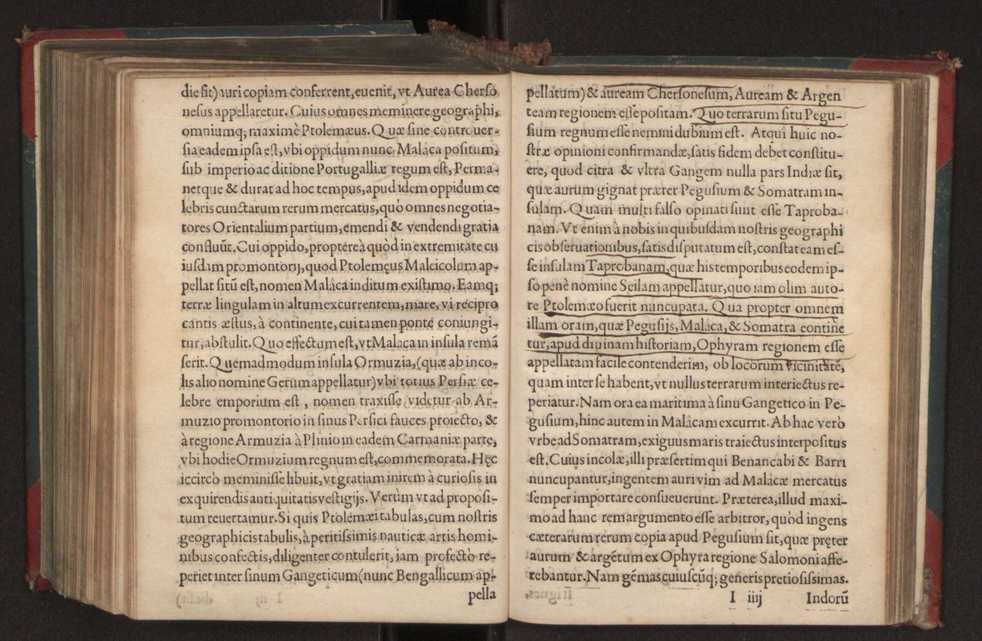 die sit) auri copiam conferrent, euenit, vt Aurea Cherso
nesus appellaretur. Cuius omnes meminere geographi,
omniumq; maximè Ptolemæus. Quæ sine controuer-
sia eadem ipsa est, vbi oppidum nunc Maláca positum,
sub imperio ac ditione Portugalliæ regum est, Perma-
netque & durat ad hoc tempus, apud idem oppidum ce
lebris cunctarum rerum mercatus, quò omnes negotia-
tores Orientalium partium, emendi & vendendi gratia
confluũt. Cui oppido, proptereà quòd in extremitate cu
iusdam promontorij, quod Ptolemęus Malcicolum ap-
pellat sitũ est, nomen Maláca inditum existimo. Eamq;
terræ lingulam in altum excurrentem, mare, vi recipro
cantis æstus, à continente, cui tamen ponte coniungi-
tur, abstulit. Quo effectum est, vt Malaca in insula remã
serit. Quemadmodum insula Ormuzia, (quæ ab inco-
lis alio nomine Gerum appellatur) vbi totius Persiæ ce-
lebre emporium est, nomen traxisse videtur ab Ar-
muzio promontorio in sinus Persici fauces proiecto, &
à regione Armuzia à Plinio in eadem Carmaniæ parte,
vbi hodie Ormuzium regnum est, commemorata. Hęc
iccirco meminisse libuit, vt gratiam inirem à curiosis in
exquirendis antiquitatis vestigijs. Verùm vt ad proposi-
tum reuertamur. Si quis Ptolemæi tabulas, cum nostris
geographicis tabulis, à peritissimis nauticæ artis homi-
nibus confectis, diligenter contulerit, iam profectò re-
periet inter sinum Gangeticum (nunc Bengallicum ap-
pella
pellatum) & auream Chersonesum, Auream & Argen
team regionem esse positam. Quo terrarum situ Pegu-
sium regnum esse nemini dubium est. Atqui huic no-
stræ opinioni confirmandæ, satis fidem debet constitu-
ere, quod citra & vltra Gangem nulla pars Indiæ sit,
quæ aurum gignat præter Pegusium & Somatram in-
sulam. Quam multi falso opinati sunt esse Taproba-
nam. Vt enim à nobis in quibusdam nostris geographi
cis obseruationibus, satis disputatum est, constat eam es-
se insulam Taprobanam, quæ his temporibus eodem ip-
so penè nomine Seilam appellatur, quo iam olim auto-
re Ptolemæo fuerit nuncupata. Qua propter omnem
illam oram, quæ Pegusijs, Malaca, & Somatra contine
tur, apud diuinam historiam, Ophyram regionem esse
appellatam facile contenderim, ob locorum vicinitatẽ,
quam inter se habent, vt nullus terrarum interiectus re-
periatur. Nam ora ea maritima à sinu Gangetico in Pe-
gusium, hinc autem in Malácam excurrit. Ab hac verò
vrbe ad Somatram, exiguus maris traiectus interpositus
est. Cuius incolæ, illi præsertim qui Benancabi & Barri
nuncupantur, ingentem auri vim ad Malácæ mercatus
semper importare consueuerunt. Præterea, illud maxi-
mo ad hanc rem argumento esse arbitror, quòd ingens
cæterarum rerum copia apud Pegusium sit, quæ pręter
aurum & argẽtum ex Ophyra regione Salomoni affe-
rebantur. Nam gẽmas cuiuscũq; generis pretiosissimas.
I iiij Indorũ